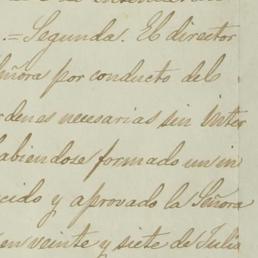 .= Segunda. El director
eñora por conducto del
rdenes necesarias sin inter
abiendose formado un in
cido y aprovado la Señora
en veinte y siete de Julio